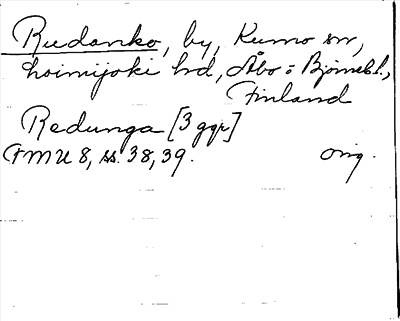 Rudanko, by, Kumo sn,
Loimijoki hd, Åbo = Björneb. l.,
Finland
Redunga [3 ggr]
FMU 8, ss. 38, 39. orig.